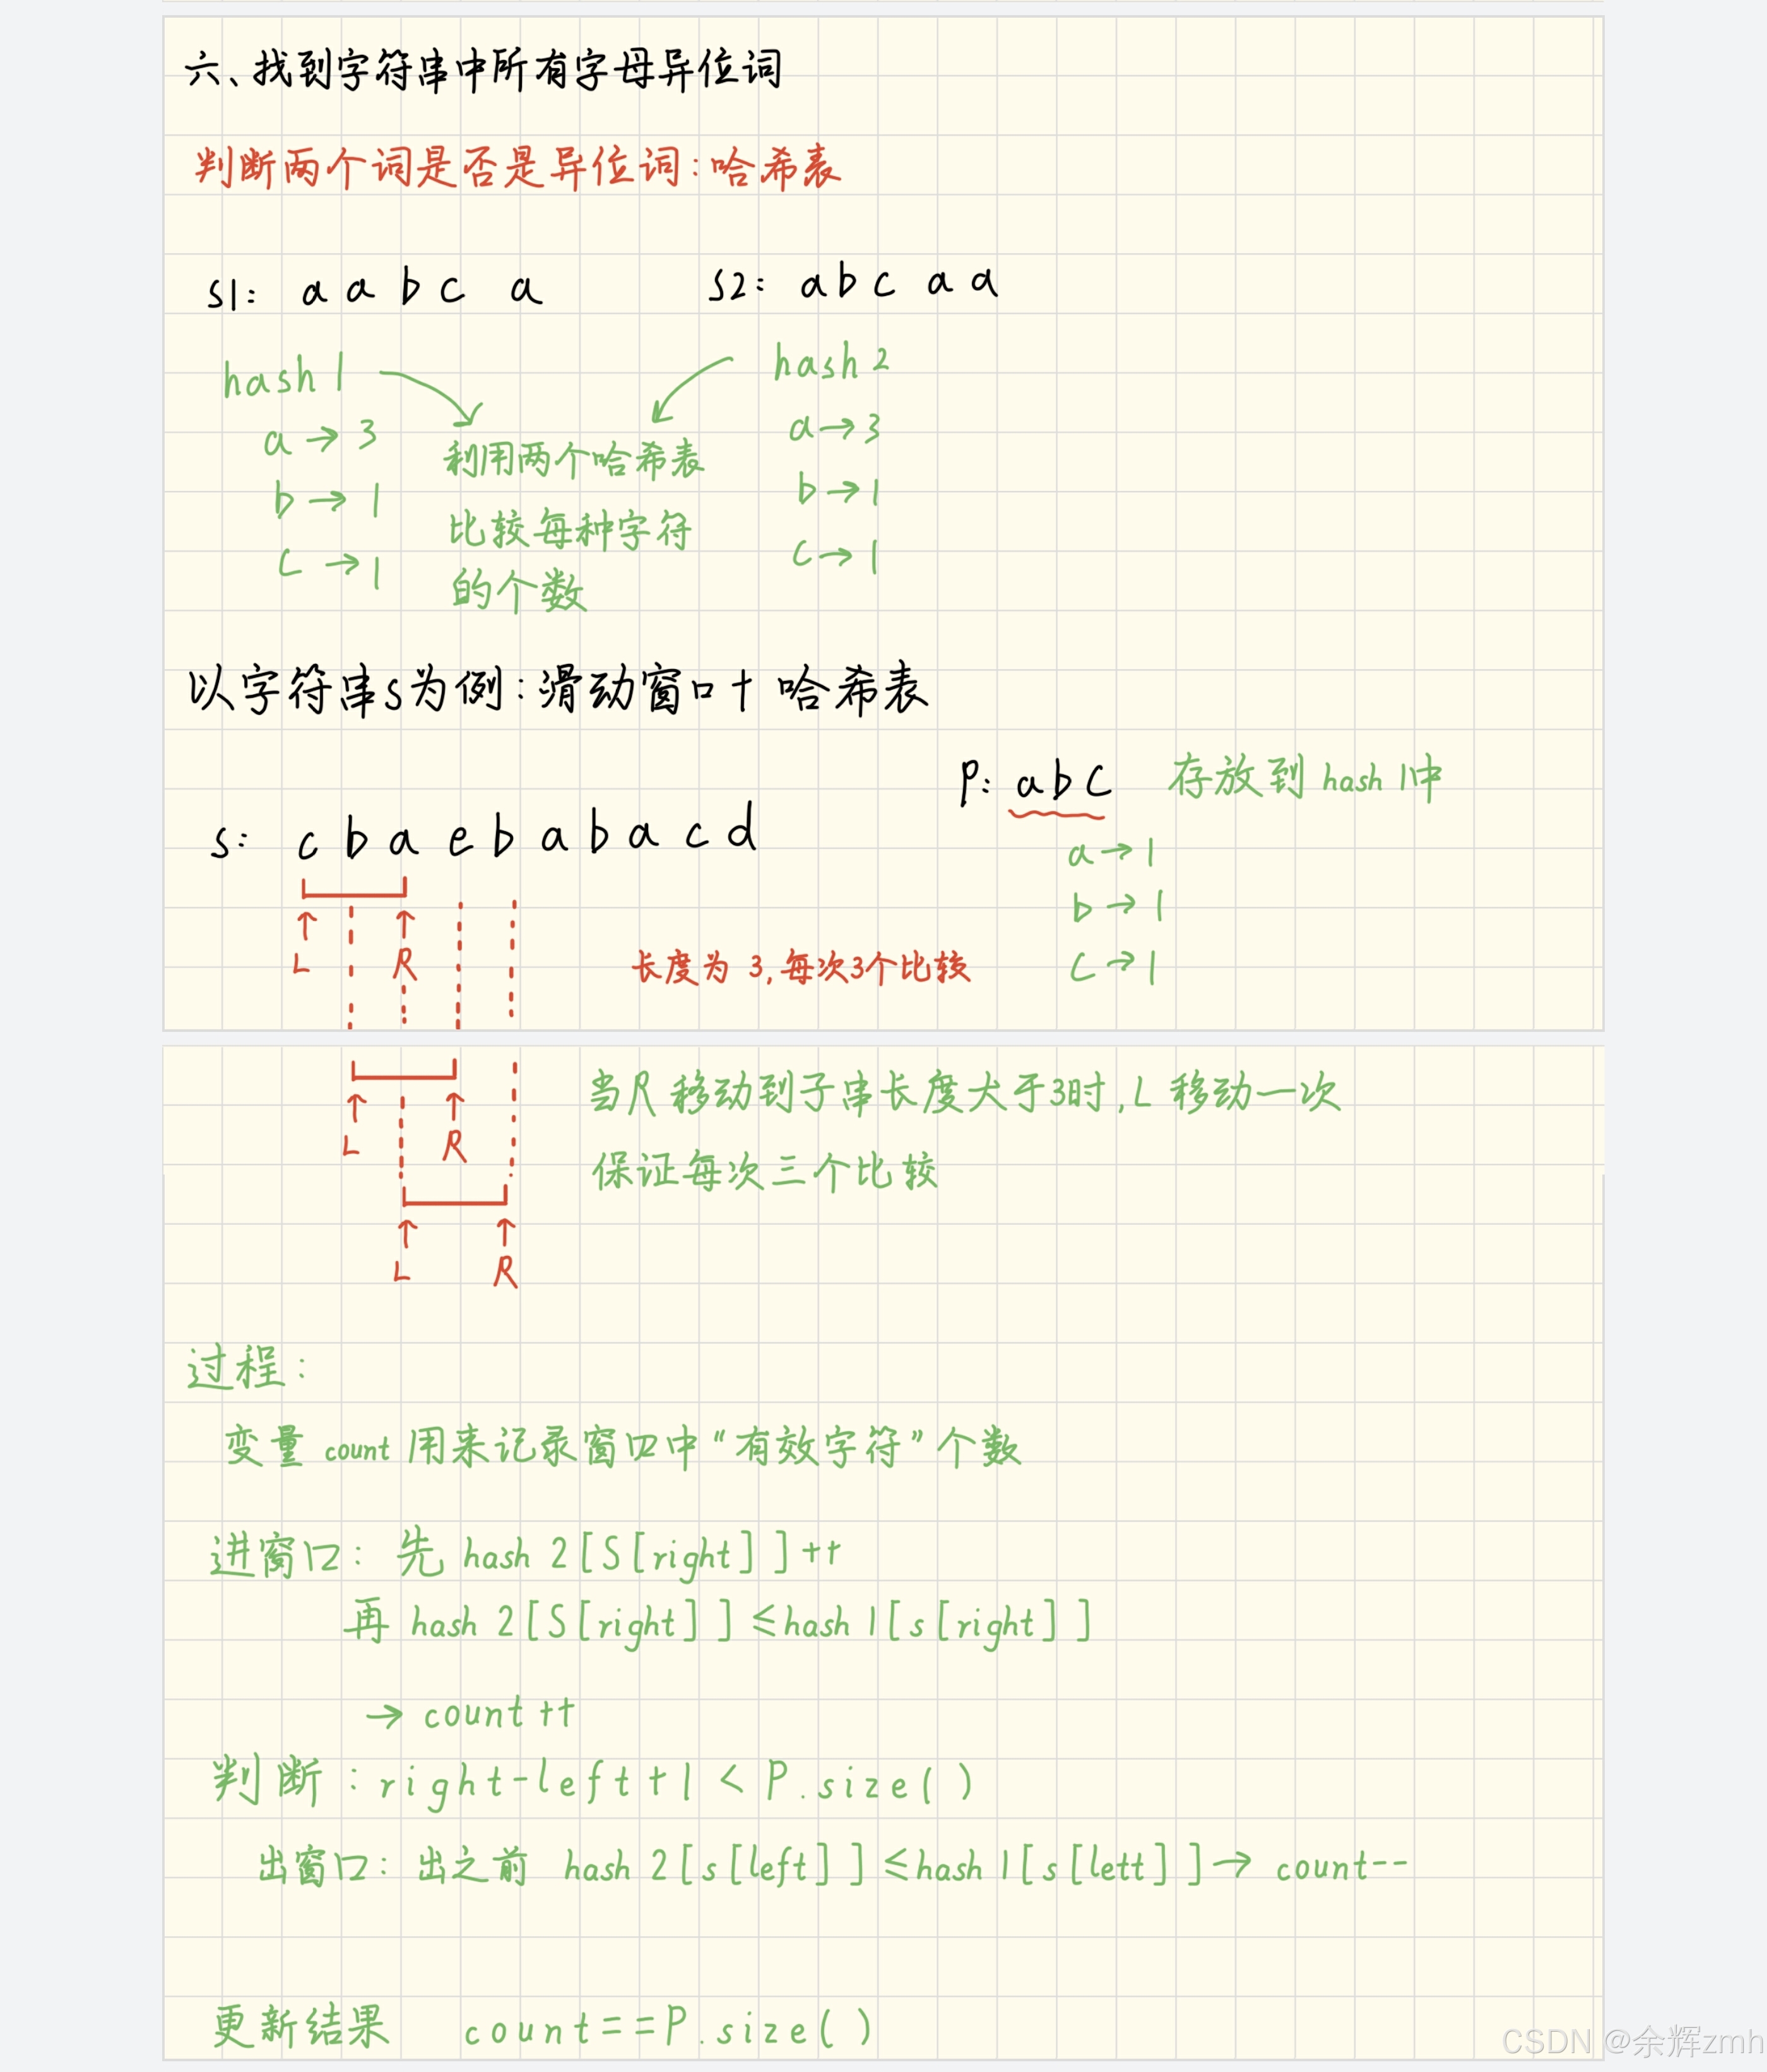 六、找到字符串中所有字母异位词
判断两个词是否是异位词:哈希表
s1: a a b c a
s2: a b c a a
hash 1
hash 2
a → 3
a → 3
利用两个哈希表
b → 1
b → 1
比较每种字符
c → 1
c → 1
的个数
以字符串s为例:滑动窗口+哈希表
P: abc 存放到 hash 1中
s: c b a e b a b a c d
a → 1
b → 1
L R
长度为 3,每次3个比较
c → 1
当R移动到子串长度大于3时,L 移动一次
L R
保证每次三个比较
L R
过程:
变量 count 用来记录窗口中“有效字符”个数
进窗口: 先 hash 2[S[right]]++
再 hash 2[S[right]] ≤ hash 1[s[right]]
→ count++
判断:right-left+1 < P.size()
出窗口: 出之前 hash 2[s[left]] ≤ hash 1[s[lett]] → count--
更新结果 count==P.size()
CSDN @余辉zmh